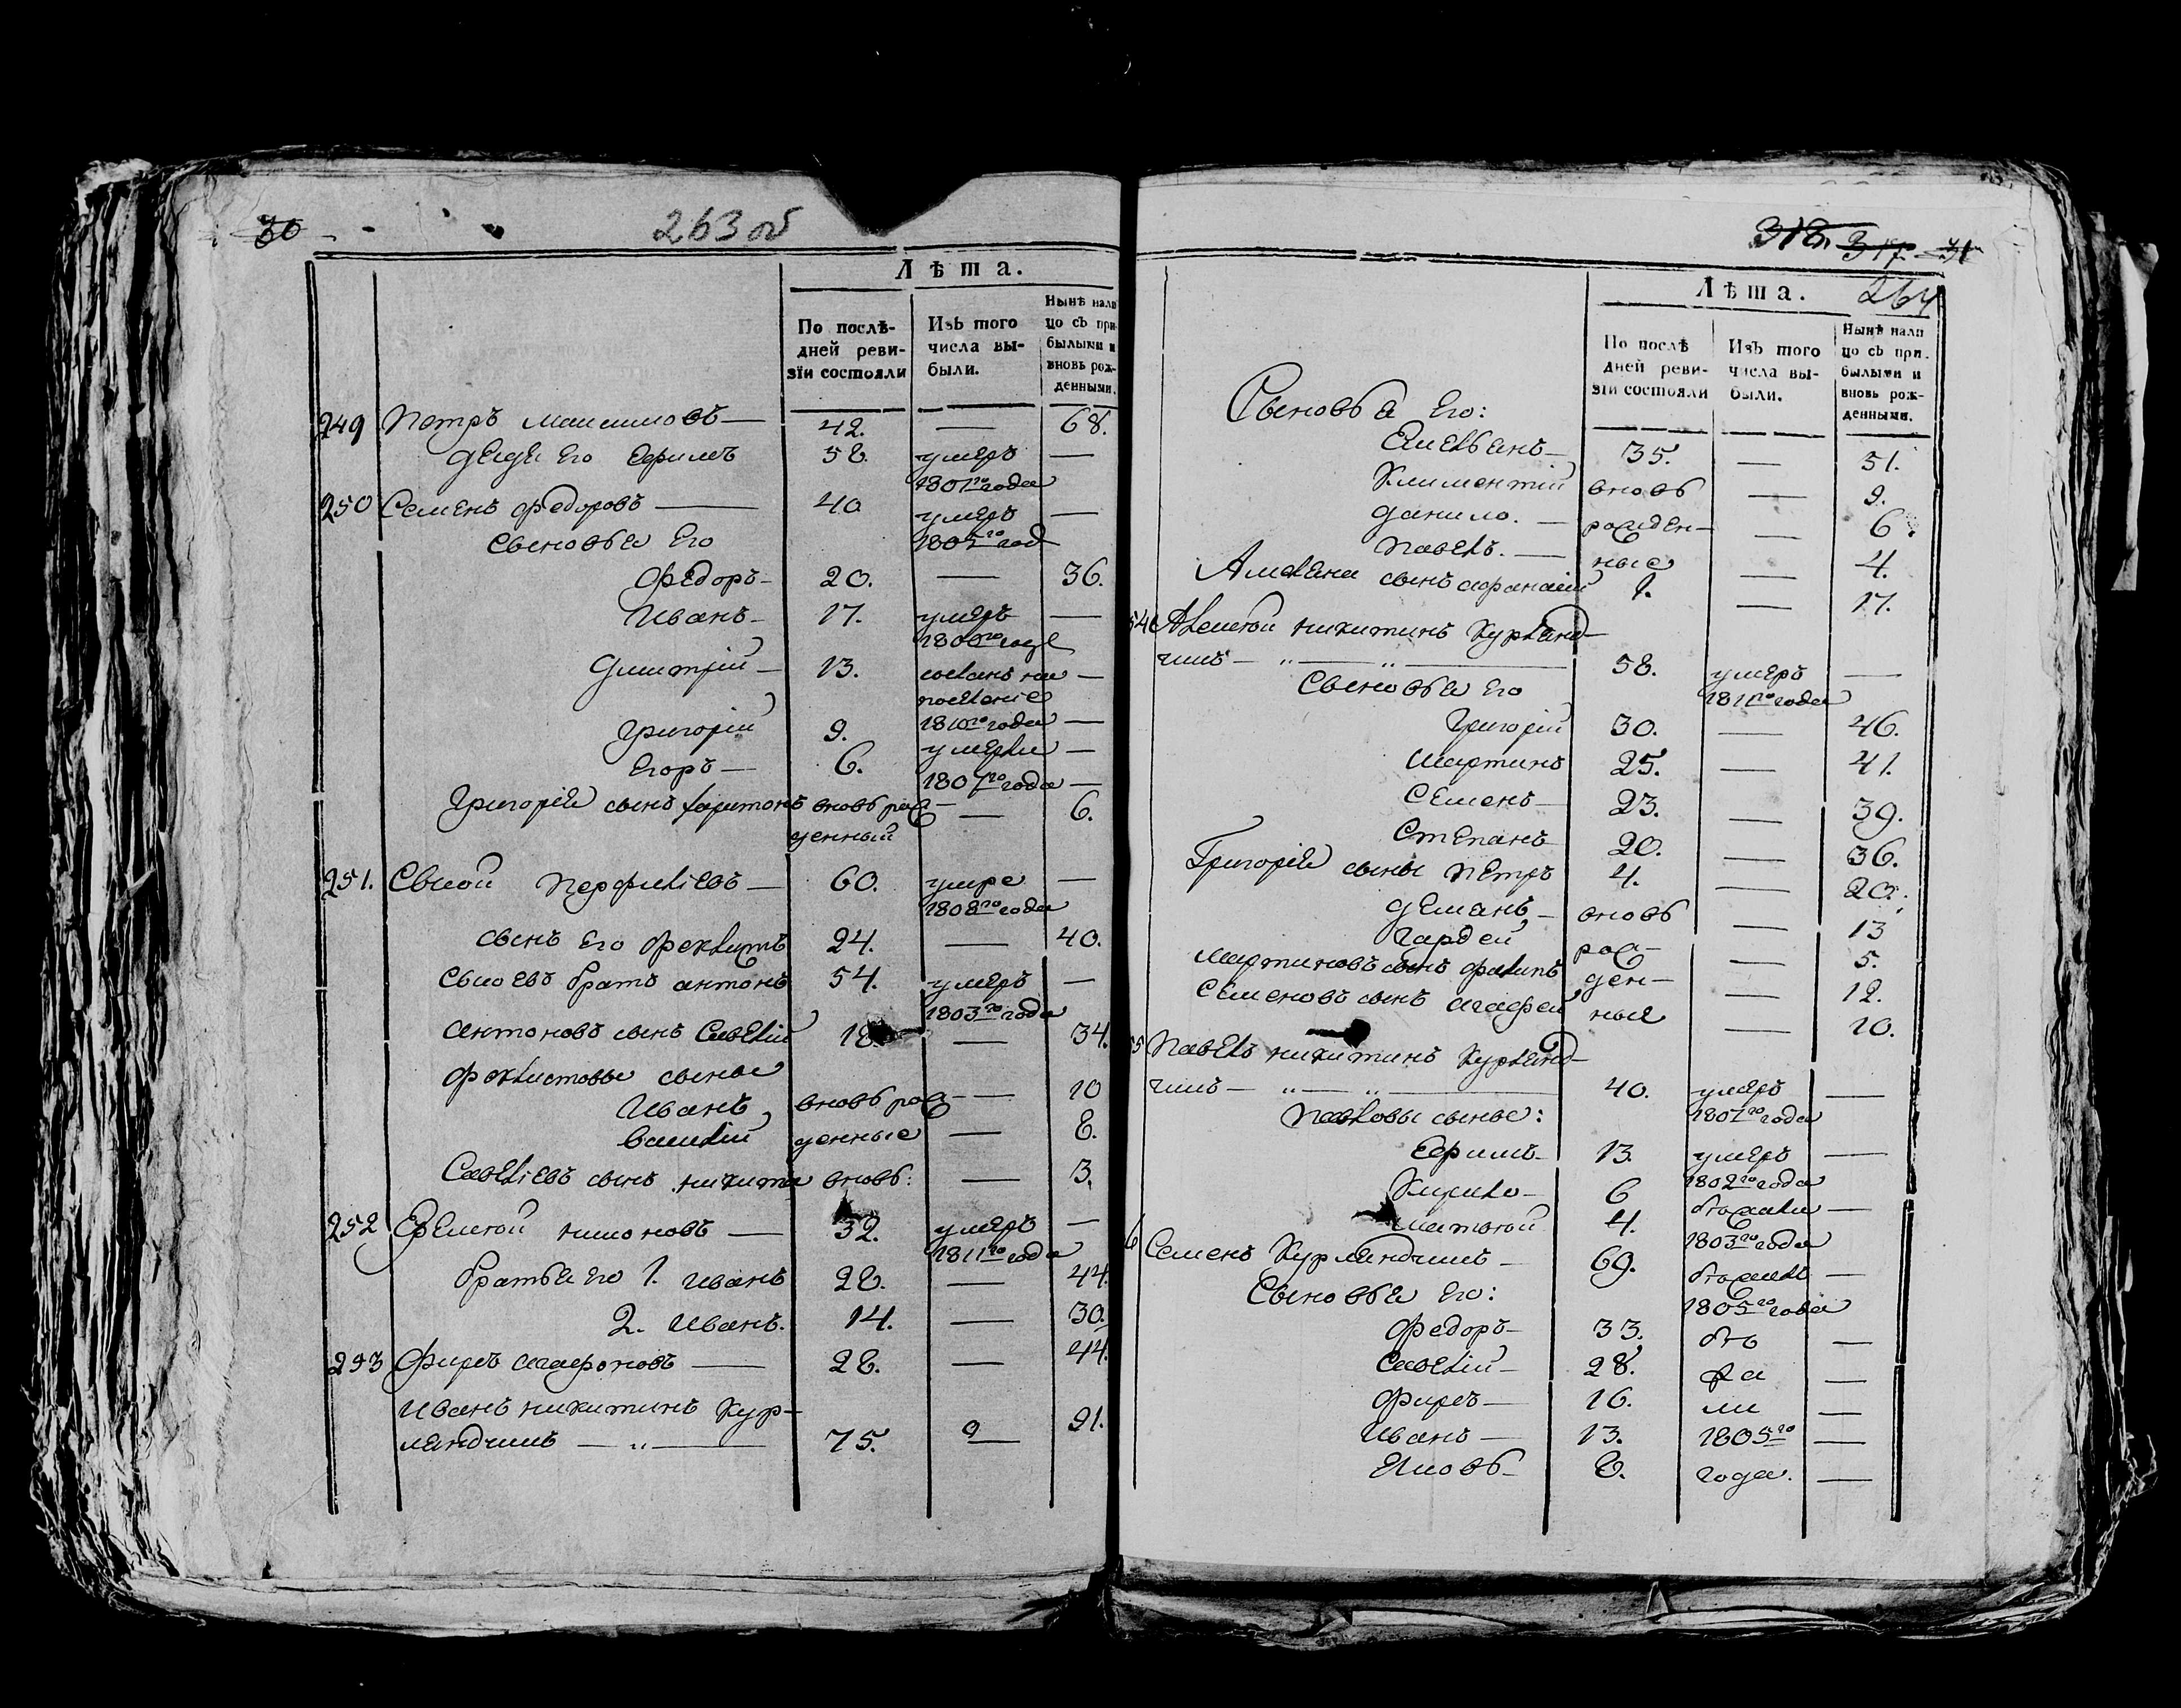 30
263 об
Лѣта.
По послѣ-
дней реви-
зіи состояли
Изъ того
числа вы-
были.
Нынѣ нали
цо съ при-
былыми и
вновь рож-
денными.
249 Петръ Максимовъ — 42. — 68.
дядя его Ефимъ 58. умеръ —
1801го года
250 Семенъ Федоровъ — 40 умеръ —
Сыновья его
Федоръ — 20. — 36.
Иванъ — 17. умеръ —
Дмитрій — 13. посланъ на —
поселеніе
1810го года —
Григорій 9.
Егоръ — 6. умерли —
1807го года —
Григорія сынъ Харитонъ вновь рож — 6.
денный
251. Сысой Перфильевъ — 60. умре —
1808го года
сынъ его Феклистъ 24. — 40.
Сысоевъ братъ антонъ 54. умеръ —
1803го года
антоновъ сынъ Савелій 18. — 34.
Феклистовы сынья
Иванъ вновь рож — 10
Василій денные — 8.
Савельевъ сынъ никита вновь: — 3.
252 Еремей — 32. умеръ —
1811го года
братья его 1. иванъ 28. — 44.
2. Иванъ. 14. — 30.
253 Фирсъ агафоновъ — 28. — 44.
Иванъ никитинъ Кур-
ляндчик — „ — 75. — 91.
318. 317 31
264
Лѣта.
По послѣ
дней реви-
зіи состояли
Изъ того
числа вы-
были.
Нынѣ нали
цо съ при-
былыми и
вновь рож-
денными.
Сыновья его:
Емельянъ — 35. — 51.
Климентій вновь — 9.
данило. — рожден- — 6.
павелъ. — ные — 4.
сынъ афанасій 1. — 17.
54 Алексей никитинъ Курлянд-
чикъ — „ — „ — 58. умеръ —
Сыновья его 1811го года
Григорій 30. — 46.
Мартинъ 25. — 41.
Семенъ — 23. — 39.
Степанъ 20. — 36.
Григорья сыны Петръ 4. — 20.
демянъ — вновь — 13
гардей рож- — 5.
Мартиновъ сынъ филипъ ден- — 12.
Семеновъ сынъ агафей ныя — 10.
55 Павелъ никитинъ Курлянд-
чикъ — „ — „ — 40. умеръ —
Павловы сынья: 1807го года
Ефимъ — 13. умеръ —
1802го года
Кирило — 6 бежали —
4. 1803го года
6 Семенъ Курляндчикъ — 69. бежалъ —
Сыновья его: 1805го года
Федоръ — 33. бѣ —
Савелій — 28. жа —
Фирсъ — 16. ли —
Иванъ — 13. 1805го —
Яковъ — 8. года. —